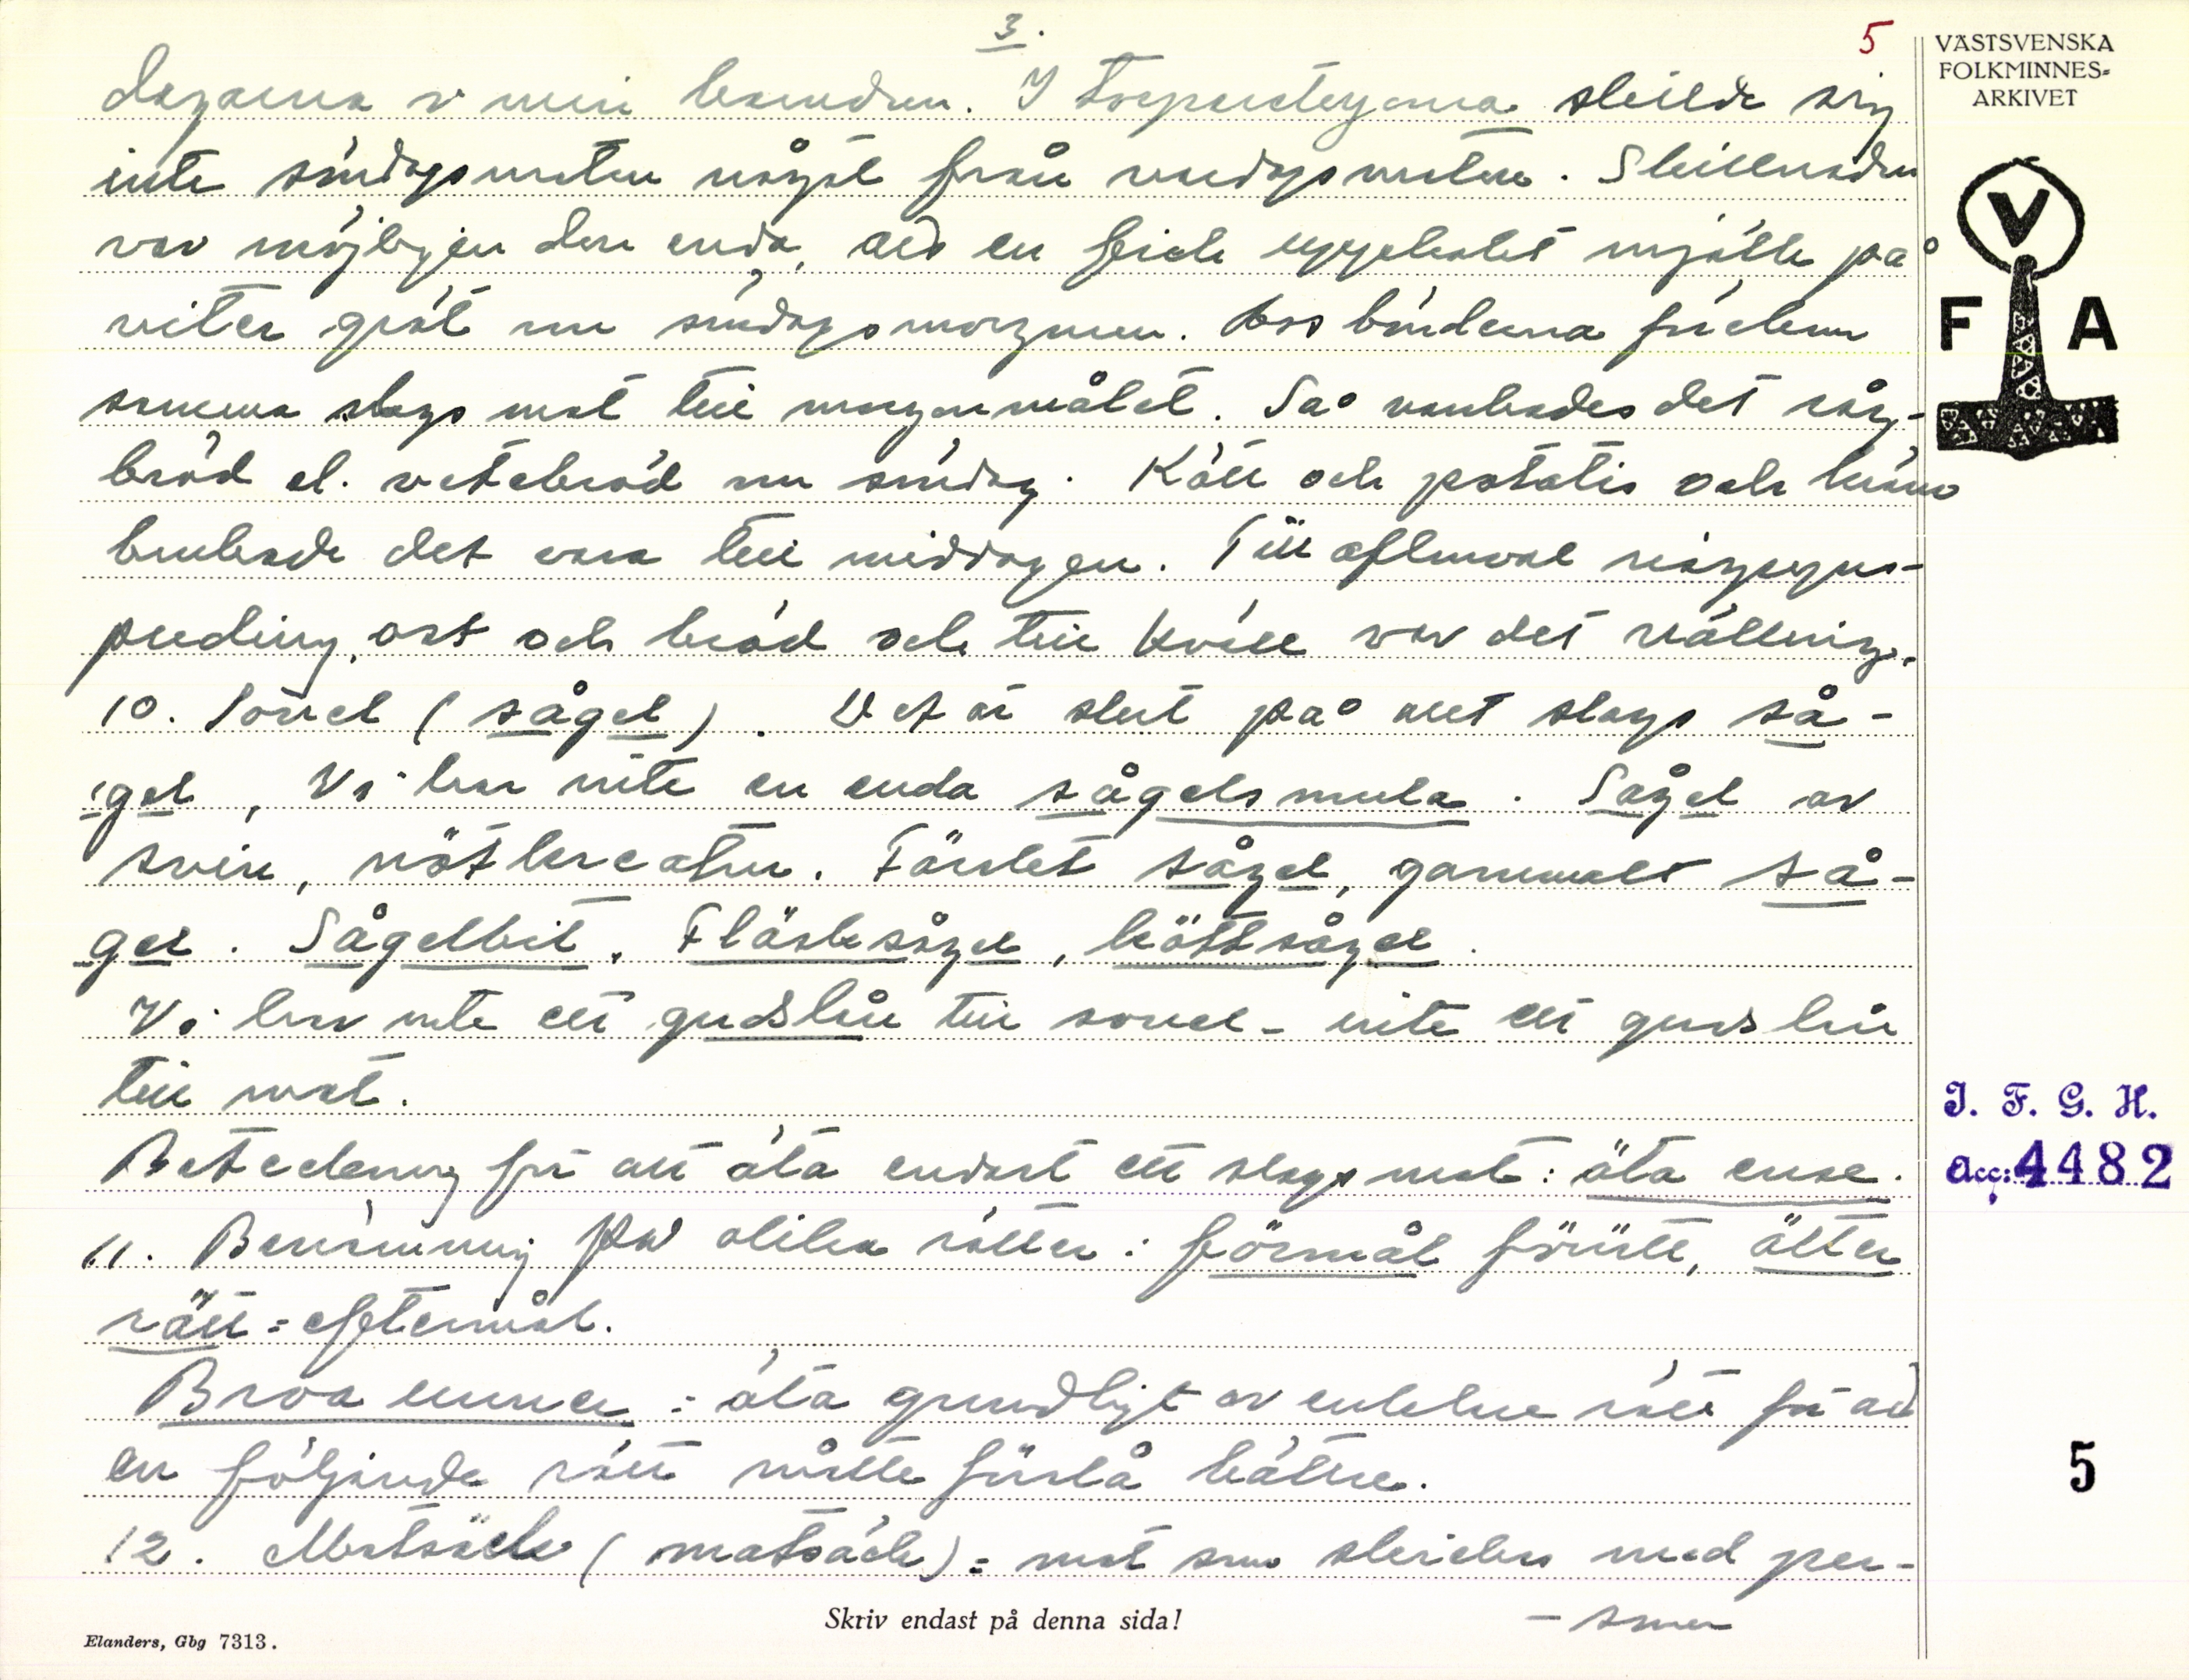 3.
5
VÄSTSVENSKA
FOLKMINNES-
ARKIVET
dagarna i min barndom. I torparstugorna skilde sig
inte söndagsmaten något från vardagsmaten. Skillnaden
var möjligen den enda, att en fick uppkokt mjölk på
F A
V
viter gröt om söndagsmorgonen. Hos bönderna fick en
samma slags mat till morgonmålet. Så vankades det råg-
bröd el. vetebröd om söndag. Kött och potatis och
brukade det vara till middagen. Till aftonval risgryns-
puding, ost och bröd och till kväll var det välling.
10. Sovel (sågel). Det är slut på allt slags så-
gel, Vi har inte en enda sågelsmula. Sågel av
svin, nötkreatur. Färskt sågel, gammalt så-
gel. Sågelbit. Fläsksågel, köttsågel.
Vi har inte ett gudslån till sovel - inte ett gudslån
till mat.
I. F. G. H.
Betedning för att äta endast ett slags mat: äta ense.
Acc: 4482
11. Benämning på olika rätter: förmål förrätt, ätter
rätt = eftermål.
Broa unner = äta grundligt av enklare rätt för att
en följande rätt måtte förslå bättre.
5
12. Matsäck (matsäck) = mat som skickas med per-
- soner
Skriv endast på denna sida!
Elanders, Gbg 7313.